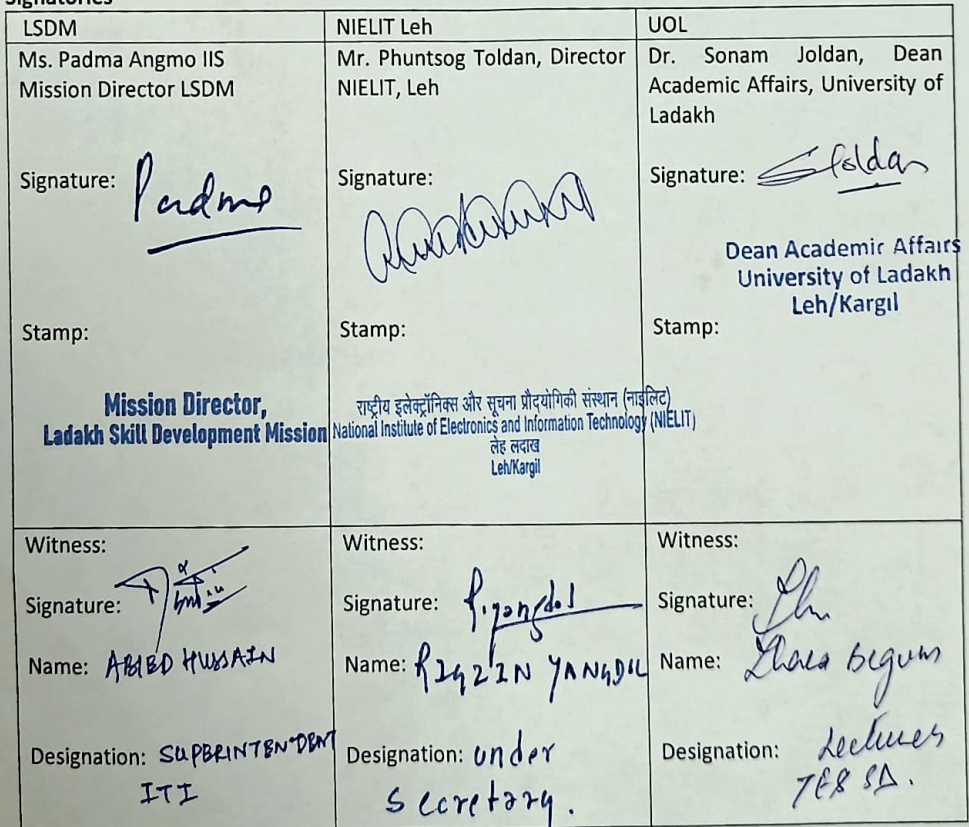 Signatories
LSDM
Ms. Padma Angmo IIS
Mission Director LSDM
Signature: Padma
Stamp:
Mission Director,
Ladakh Skill Development Mission
NIELIT Leh
Mr. Phuntsog Toldan, Director
NIELIT, Leh
Signature:
Stamp:
राष्ट्रीय इलेक्ट्रॉनिक्स और सूचना प्रौद्योगिकी संस्थान (नाइलिट)
National Institute of Electronics and Information Technology (NIELIT)
लेह लदाख
Leh/Kargil
UOL
Dr. Sonam Joldan, Dean
Academic Affairs, University of
Ladakh
Signature: SJoldan
Dean Academic Affairs
University of Ladakh
Leh/Kargil
Stamp:
Witness:
Signature:
Name: ABIED HUSSAIN
Designation: SUPERINTENDENT
ITI
Witness:
Signature: R.yangdol
Name: RIGZIN YANGDOL
Designation: under
Secretary.
Witness:
Signature:
Name: Begum
Designation: